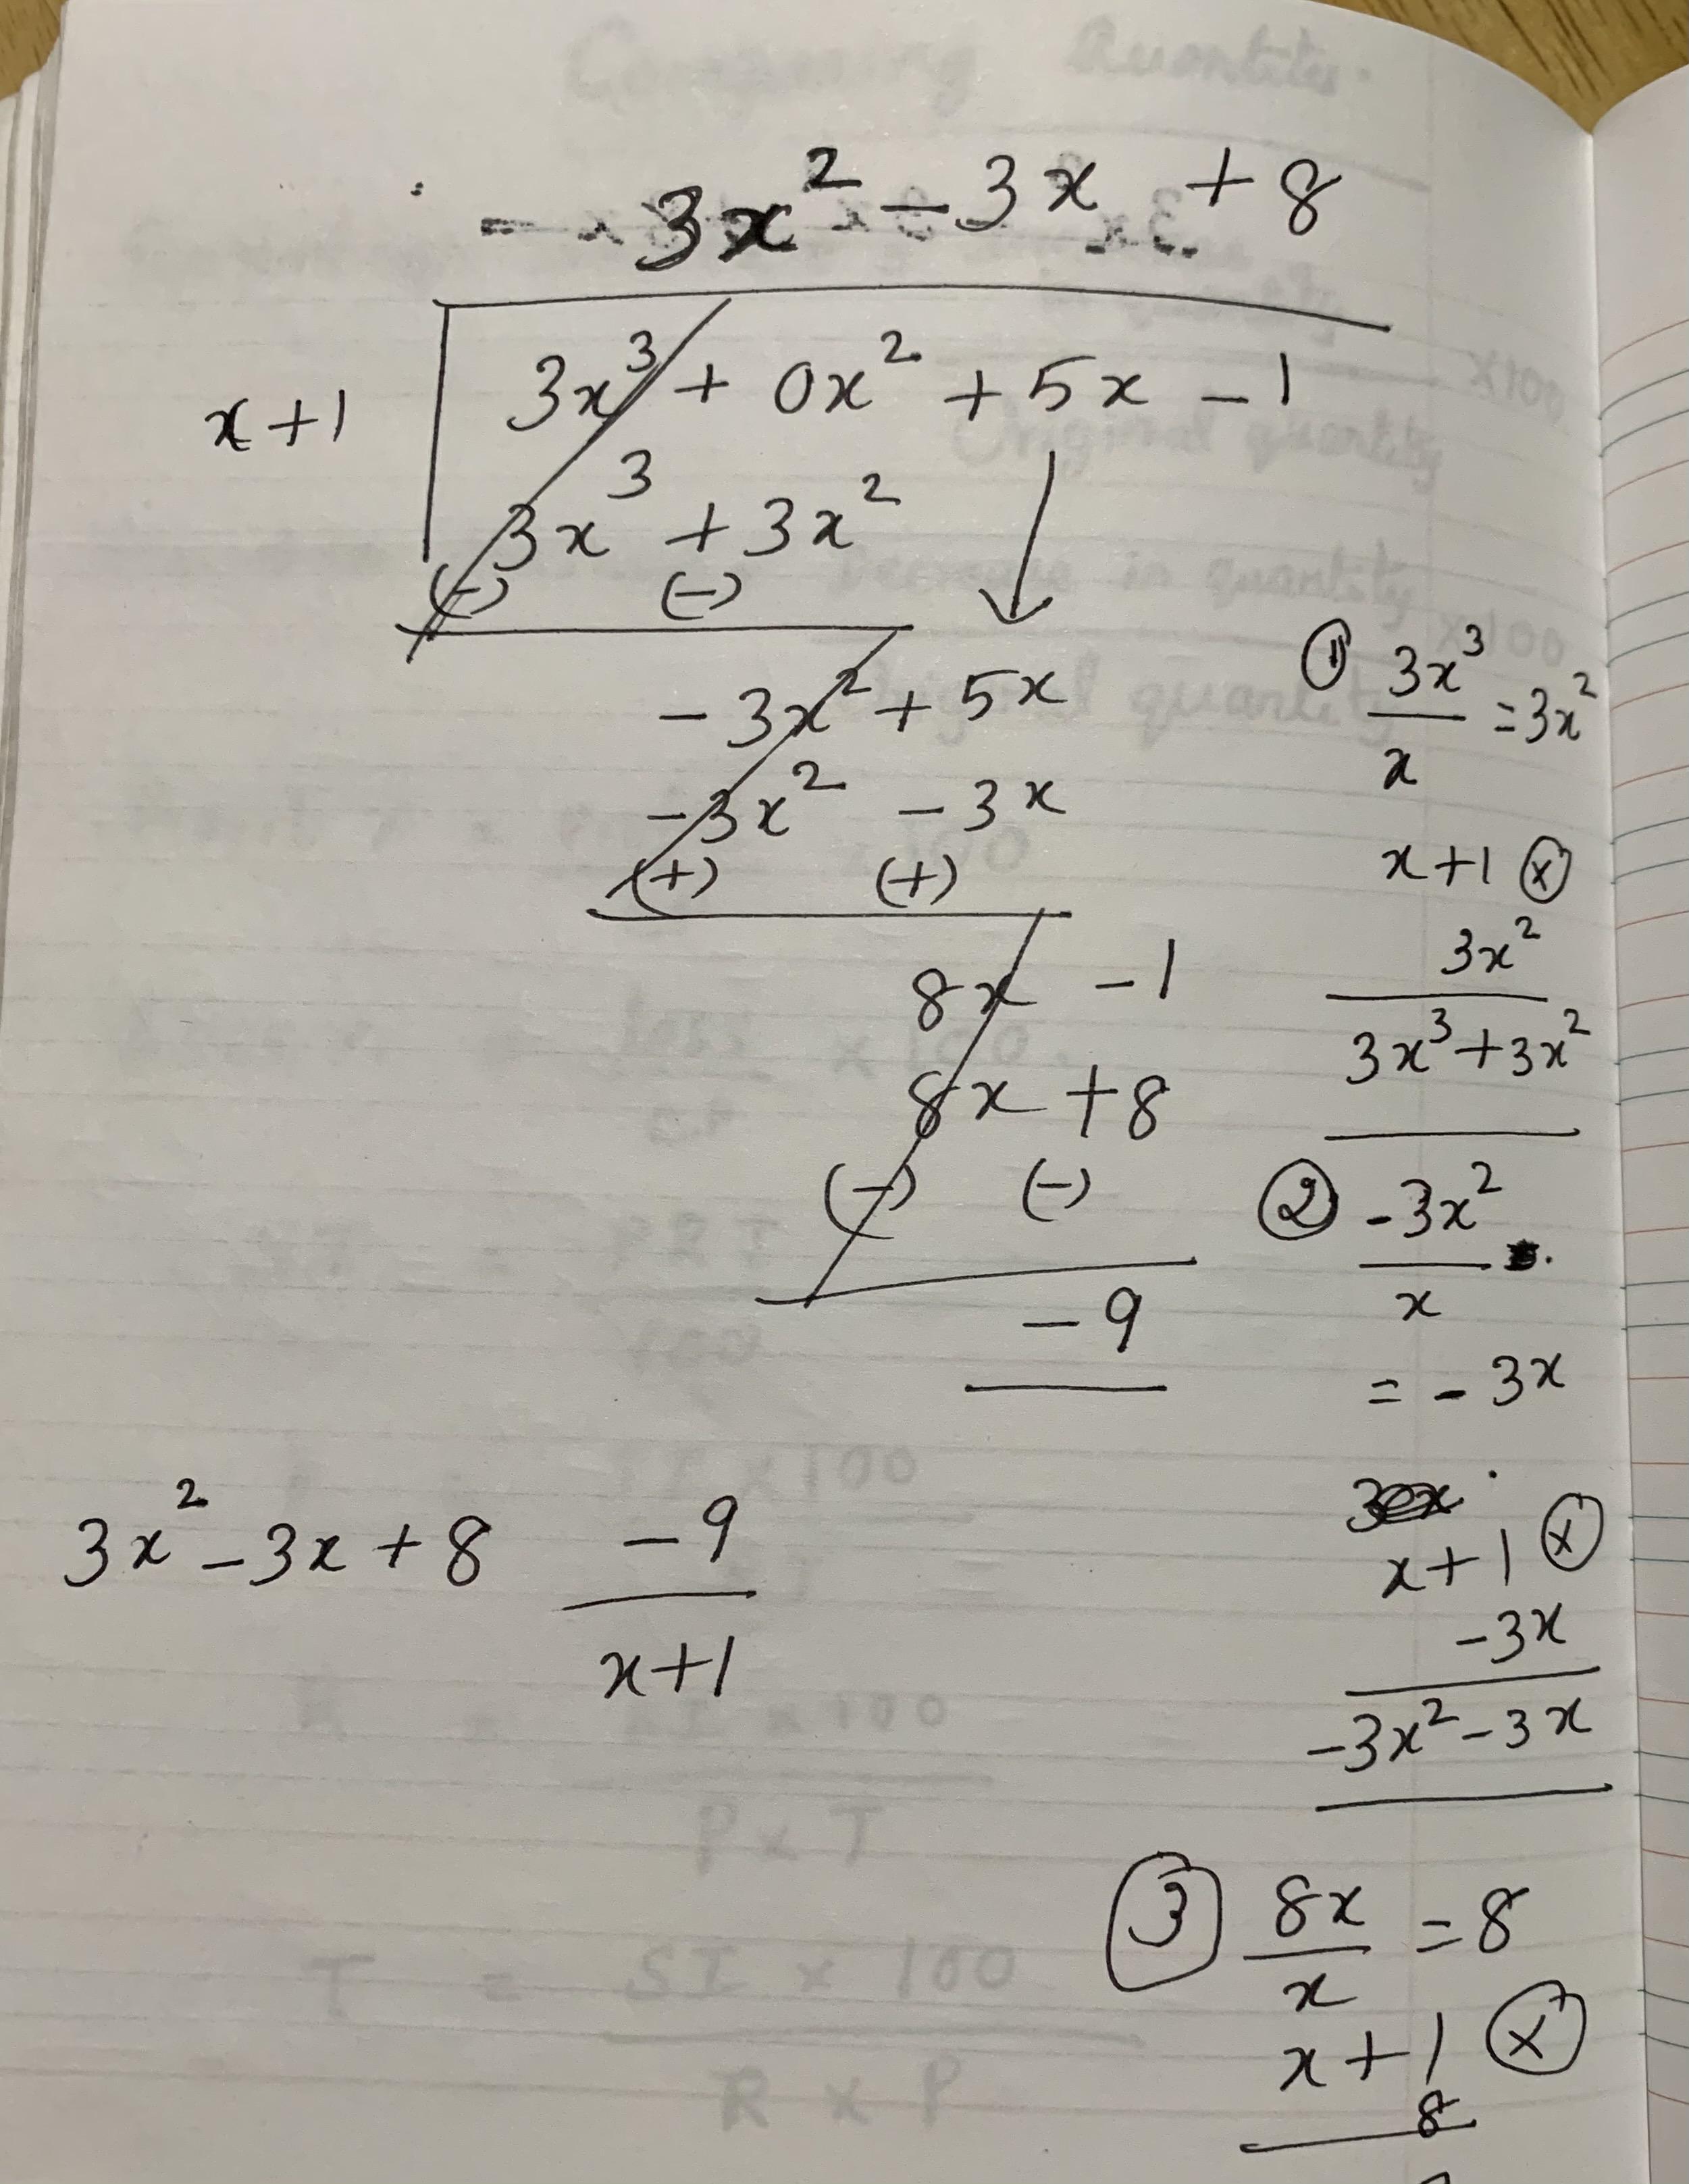 3x² - 3x + 8
x+1 3x³ + 0x² + 5x - 1
3x³ + 3x²
(-) (-)
- 3x² + 5x
- 3x² - 3x
(+) (+)
8x - 1
8x + 8
(-) (-)
- 9
3x² - 3x + 8 -9/x+1
① 3x³/x = 3x²
x+1 ⓧ
3x²
3x³ + 3x²
② -3x²/x
= - 3x
x+1 ⓧ
-3x
-3x² - 3x
③ 8x/x = 8
x+1 ⓧ
8